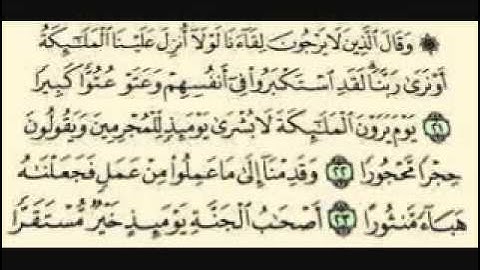 ۞ وَقَالَ ٱلَّذِينَ لَا يَرْجُونَ لِقَآءَنَا لَوْلَآ أُنزِلَ عَلَيْنَا ٱلْمَلَـٰٓئِكَةُ
أَوْ نَرَىٰ رَبَّنَا ۗ لَقَدِ ٱسْتَكْبَرُوا۟ فِىٓ أَنفُسِهِمْ وَعَتَوْ عُتُوًّا كَبِيرًا
﴿٢١﴾ يَوْمَ يَرَوْنَ ٱلْمَلَـٰٓئِكَةَ لَا بُشْرَىٰ يَوْمَئِذٍ لِّلْمُجْرِمِينَ وَيَقُولُونَ
حِجْرًا مَّحْجُورًا ﴿٢٢﴾ وَقَدِمْنَآ إِلَىٰ مَا عَمِلُوا۟ مِنْ عَمَلٍ فَجَعَلْنَـٰهُ
هَبَآءً مَّنثُورًا ﴿٢٣﴾ أَصْحَـٰبُ ٱلْجَنَّةِ يَوْمَئِذٍ خَيْرٌ مُّسْتَقَرًّا